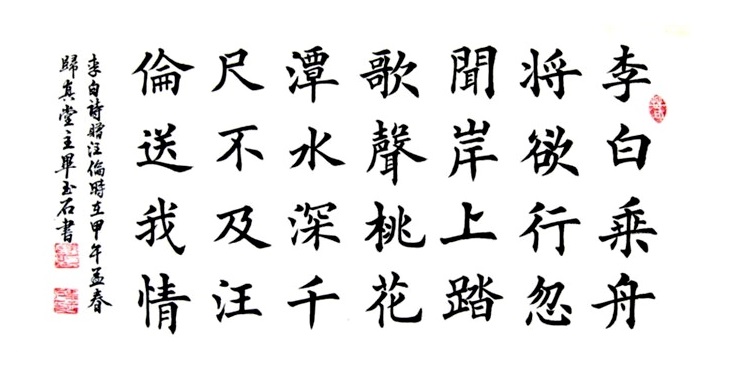 李白乘舟
將欲行忽
聞岸上踏
歌聲桃花
潭水深千
尺不及汪
倫送我情
李白詩贈汪倫時在甲午孟春
歸真堂主畢玉石書